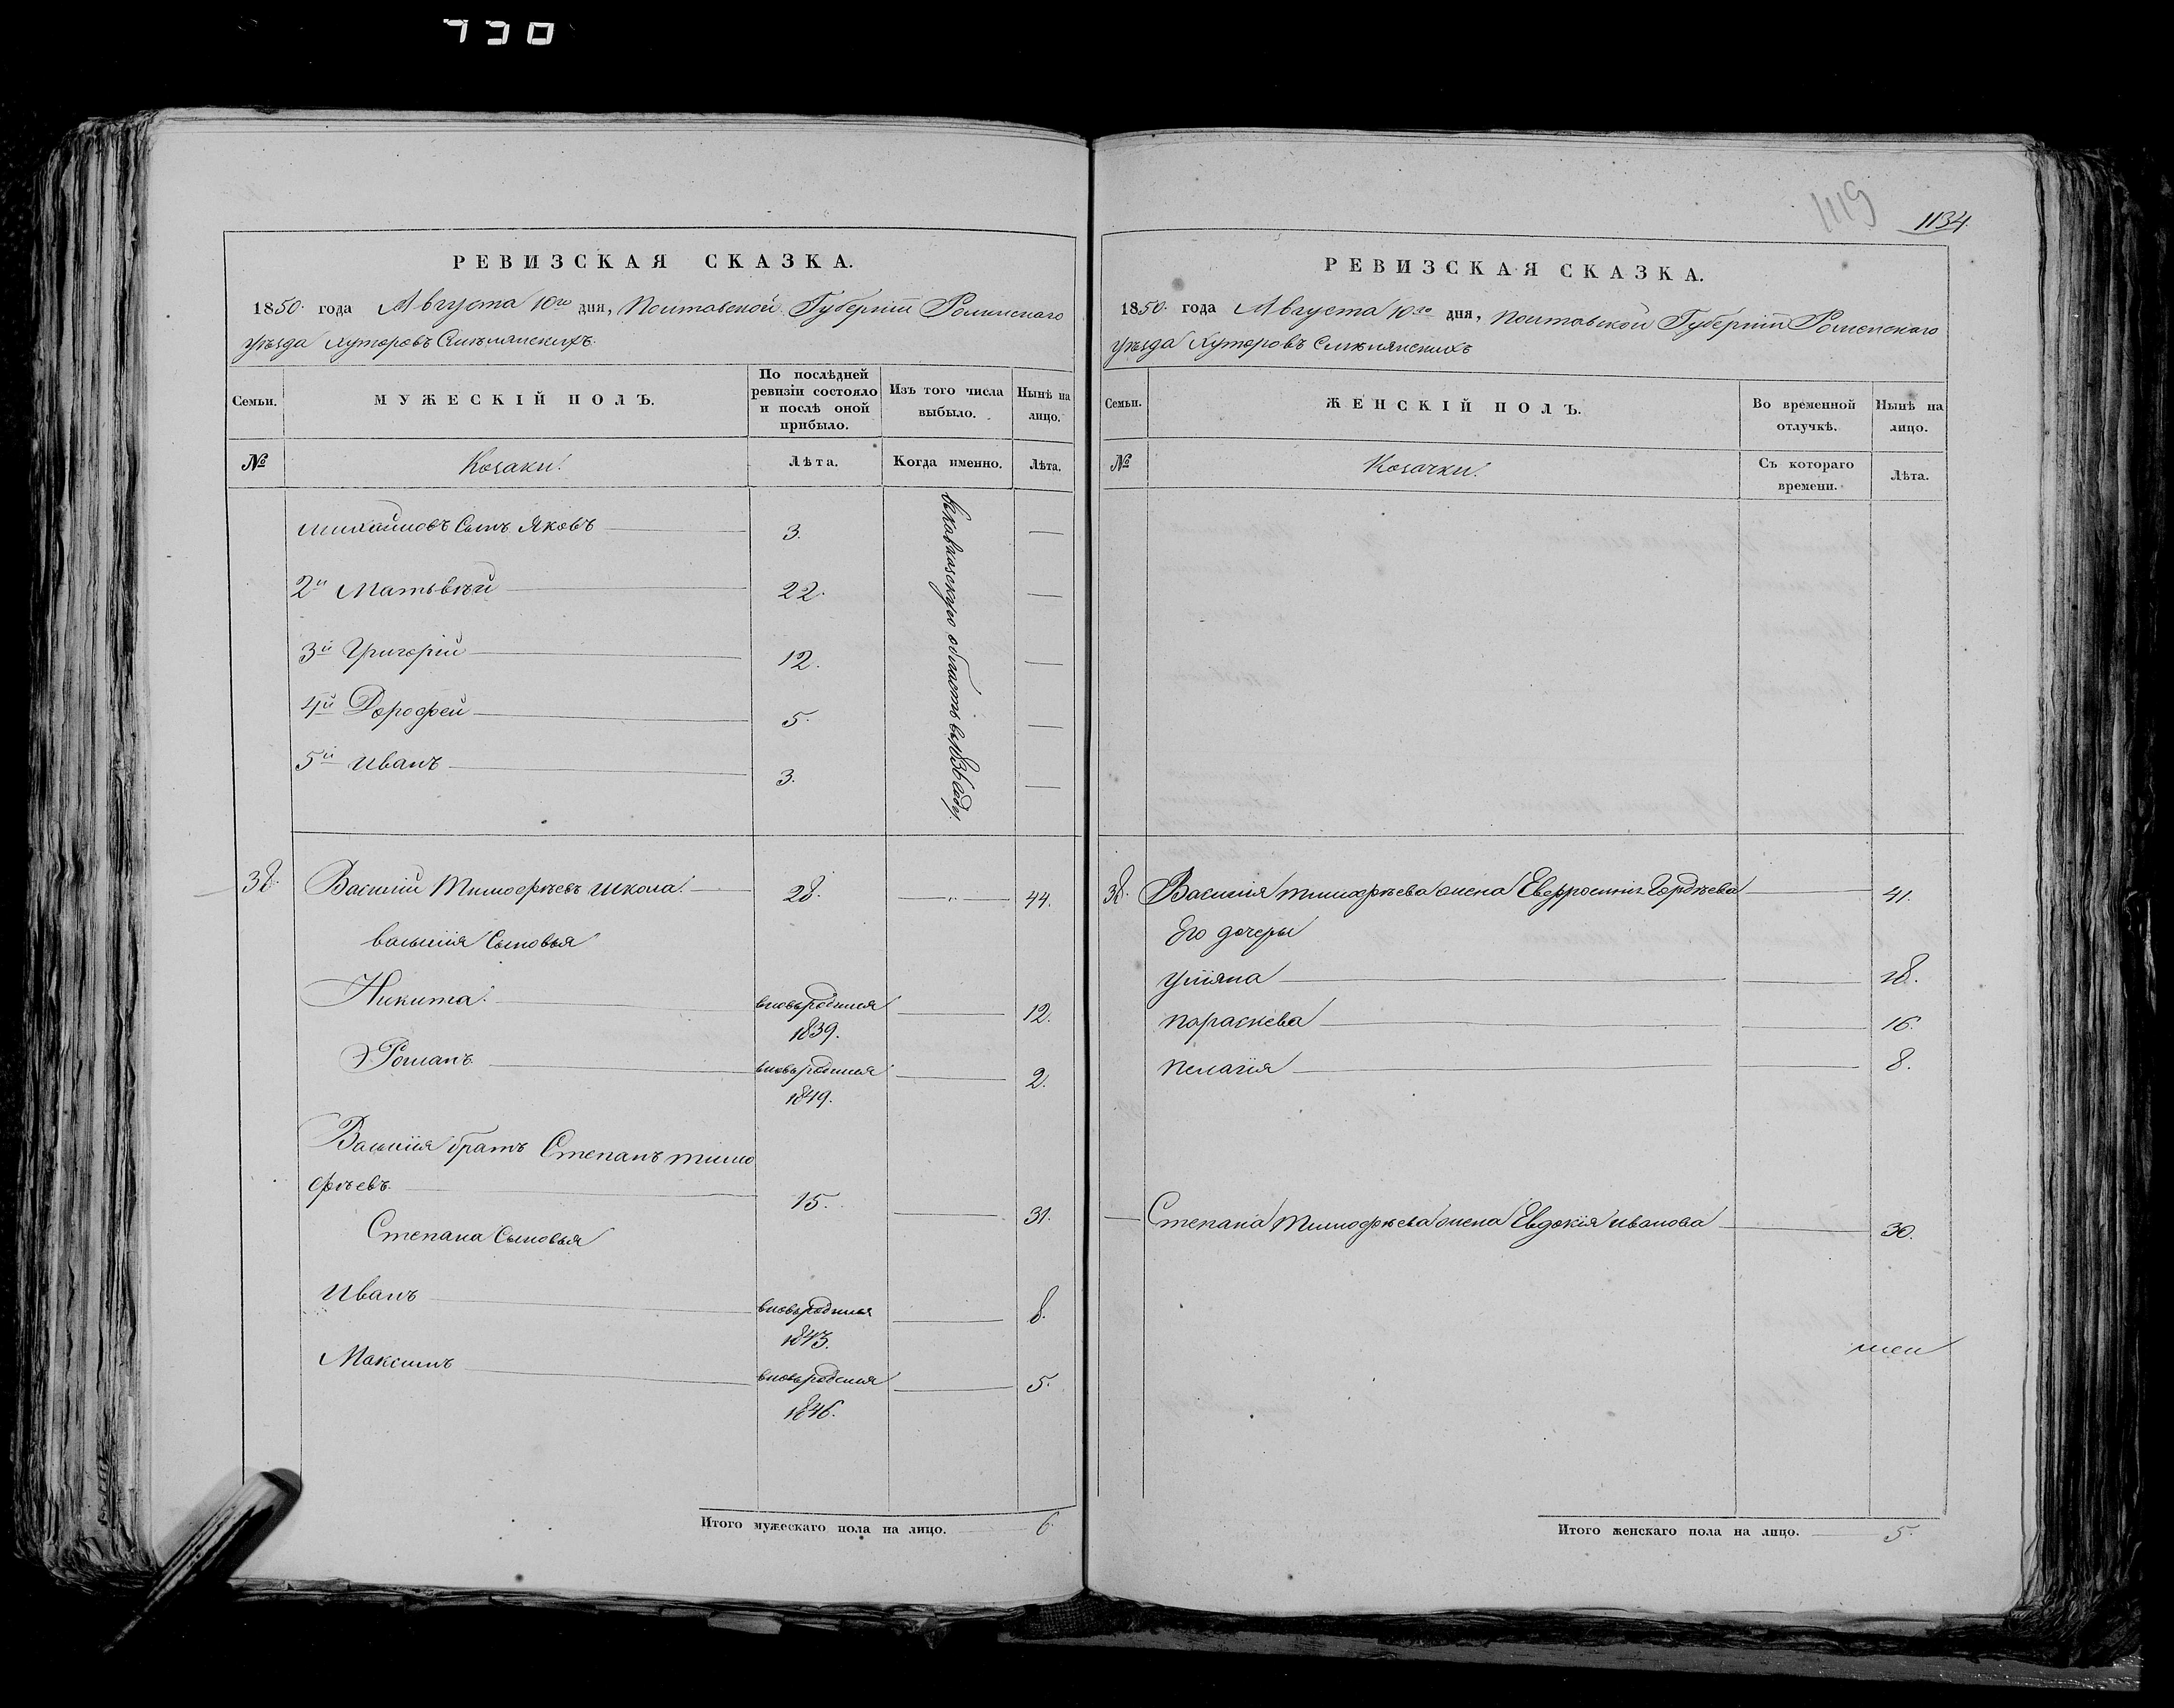 730
РЕВИЗСКАЯ СКАЗКА.
1850 года Августа 10го дня, Полтавской Губерніи Роменскаго
уѣзда Хуторовъ
Семьи.
МУЖЕСКІЙ ПОЛЪ.
По послѣдней ревизіи состояло и послѣ оной прибыло.
Изъ того числа выбыло.
Нынѣ на лицо.
№
Козаки.
Лѣта.
Когда именно.
Лѣта.
Михайловъ Сынъ Яковъ 3.
2й Матьвѣй 22.
3й Григорій 12.
4й Дорофей 5.
5й Иванъ 3.
вкавказскую область в 1836 году
38. Василий Тимофѣевъ Школа. 28. 44.
василія Сыновья
Никита. вновьродился 12.
1839.
2. Романъ вновьродился 2.
1849.
Василія братъ Степанъ тимо
фѣевъ 15. 31.
Степана Сыновья
Иванъ вновьродился 8.
1843.
Максимъ вновьродился 5.
1846.
Итого мужескаго пола на лицо. 6.
1119
1134
РЕВИЗСКАЯ СКАЗКА.
1850 года Августа 10го дня, Полтавской Губерніи Роменскаго
уѣзда Хуторовъ
Семьи.
ЖЕНСКІЙ ПОЛЪ.
Во временной отлучкѣ.
Нынѣ на лицо.
№
Козачки.
Съ котораго времени.
Лѣта.
38. Василія тимофѣева жена Евфросинія Гордѣева 41.
Его дочеры
Уліяна 18.
параскева 16.
пелагія 8.
Степана Тимофѣева жена Евдокія иванова 30.
Итого женскаго пола на лицо. 5.